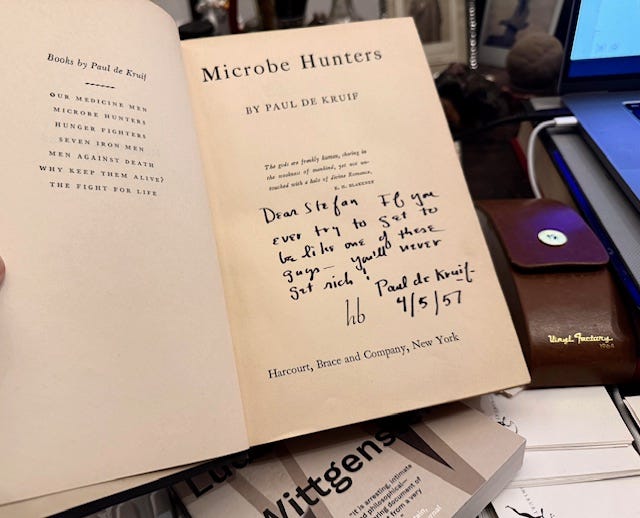 Books by Paul de Kruif
OUR MEDICINE MEN
MICROBE HUNTERS
HUNGER FIGHTERS
SEVEN IRON MEN
MEN AGAINST DEATH
WHY KEEP THEM ALIVE?
THE FIGHT FOR LIFE
Microbe Hunters
BY PAUL DE KRUIF
The gods are frankly human, sharing in
the weakness of mankind, yet not un-
touched with a halo of divine Romance.
E. H. BLAKENEY
Dear Stefan If you
ever try to get to
be like one of these
guys— you'll never
get rich!
Paul de Kruif
4/5/57
hb
Harcourt, Brace and Company, New York
Vinyl Factory
Wittgens
"It is arresting, intimate